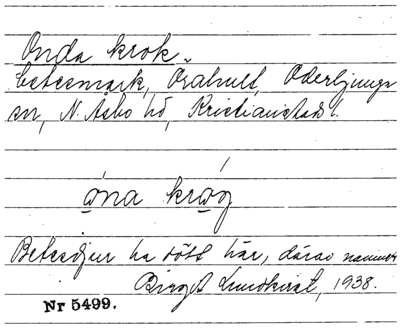 Onda krok.
betesmark, Örahult, Oderljunga
sn, N. Åsbo hd, Kristianstads l.
óna króg
Betesdjur ha dött här, därav namnet
Birgit Lundkvist, 1938.
Nr 5499.